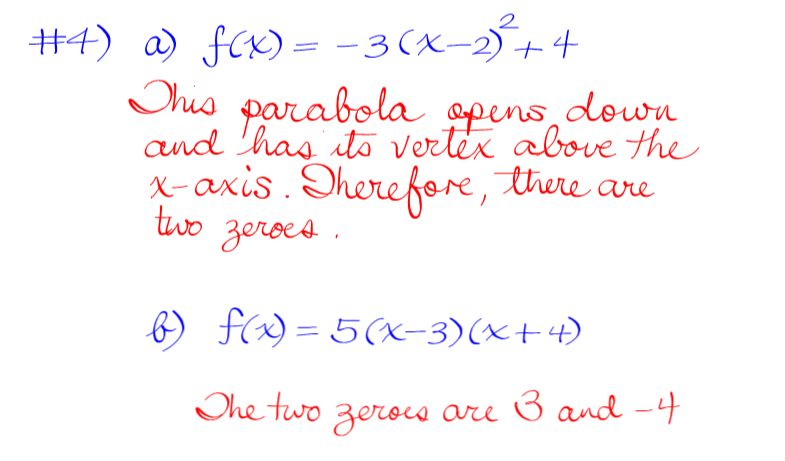 #4) a) f(x) = -3(x-2)² + 4
This parabola opens down
and has its vertex above the
x-axis. Therefore, there are
two zeroes.
b) f(x) = 5(x-3)(x+4)
The two zeroes are 3 and -4